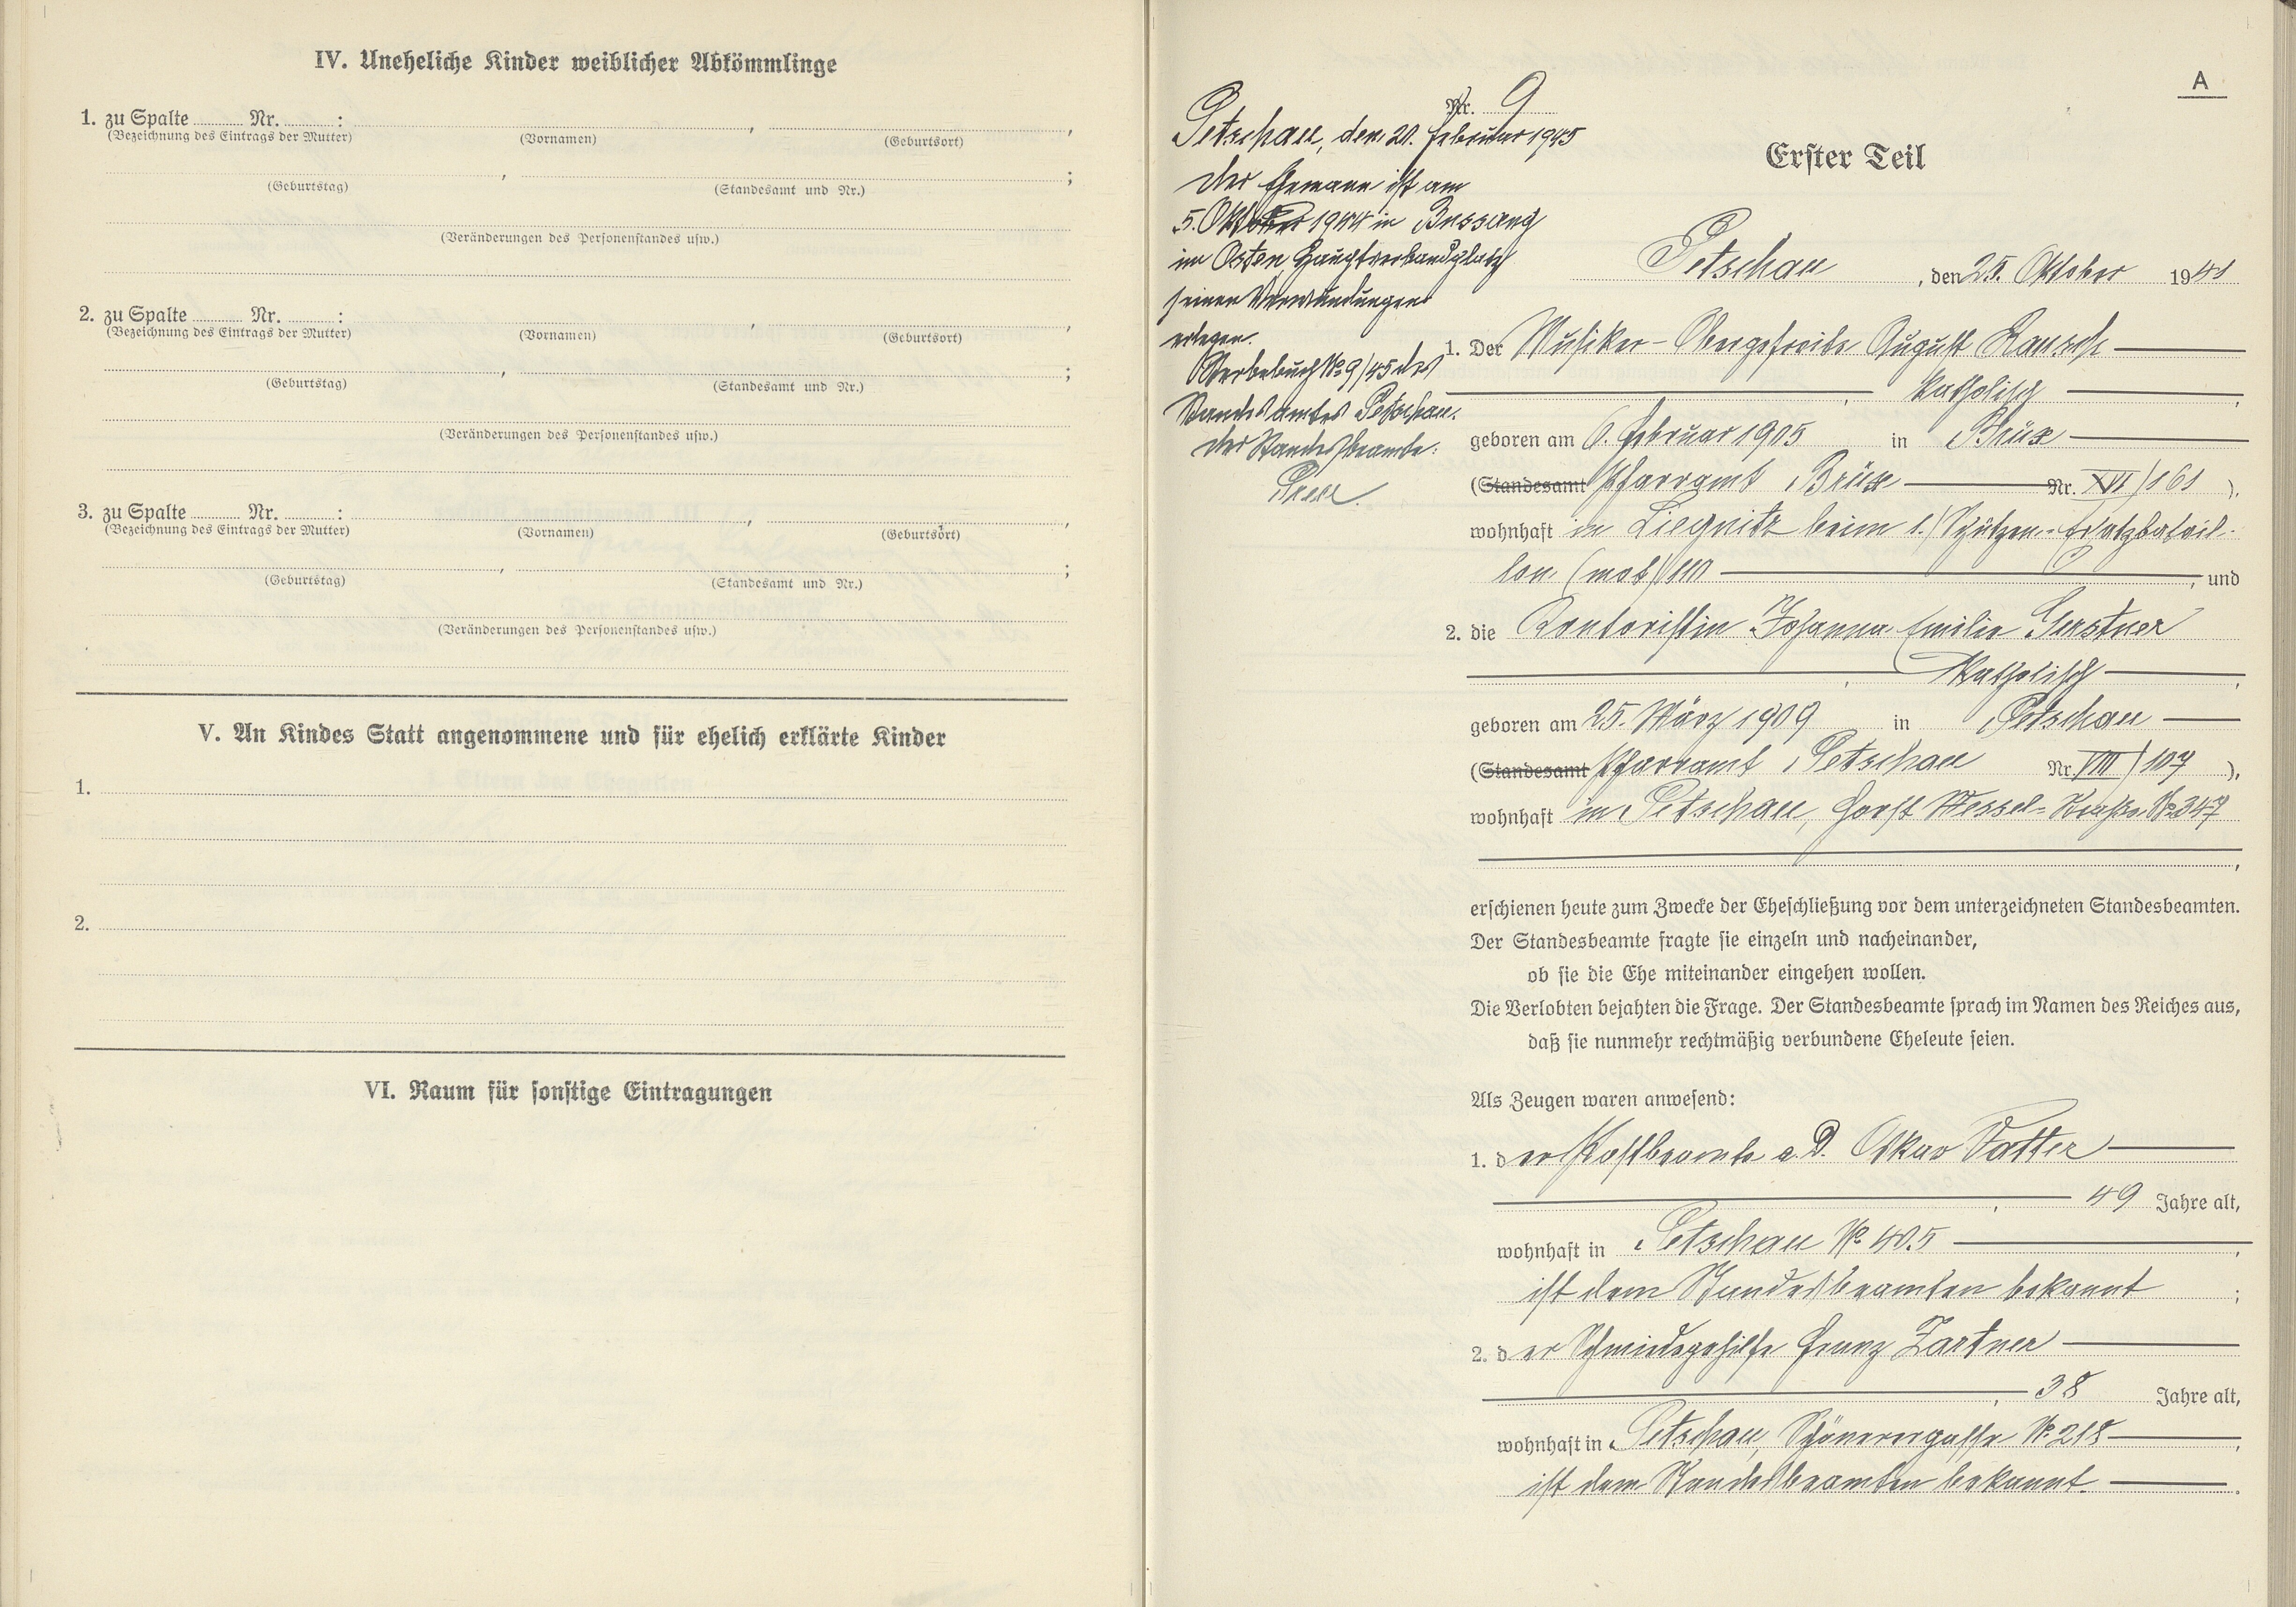 IV. Uneheliche Kinder weiblicher Abkömmlinge
1. zu Spalte Nr. : , ,
(Bezeichnung des Eintrags der Mutter) (Vornamen) (Geburtsort)
, ;
(Geburtstag) (Standesamt und Nr.)
(Veränderungen des Personenstandes usw.)
2. zu Spalte Nr. : , ,
(Bezeichnung des Eintrags der Mutter) (Vornamen) (Geburtsort)
, ;
(Geburtstag) (Standesamt und Nr.)
(Veränderungen des Personenstandes usw.)
3. zu Spalte Nr. : , ,
(Bezeichnung des Eintrags der Mutter) (Vornamen) (Geburtsort)
, ;
(Geburtstag) (Standesamt und Nr.)
(Veränderungen des Personenstandes usw.)
V. An Kindes Statt angenommene und für ehelich erklärte Kinder
1.
2.
VI. Raum für sonstige Eintragungen
A
Nr. 9
Petschau, den 20. Februar 1945
Der Ehemann ist am
5. Oktober 1944 in Bussang
im Osten, Hauptverbandplatz
seinen Verwundungen
erlegen.
Sterbebuch No 9/45 des
Standesamtes Petschau.
Der Standesbeamte:
Erster Teil
Petschau, den 25. Oktober 1941
1. Der Musiker-Obergefreite August Rausch
, katholisch ,
geboren am 6. Februar 1905 in Brüx
(Standesamt Pfarramt Brüx Nr. XVI/161 ),
wohnhaft in Liegnitz beim 1./Schützen-Ersatzbatail-
lon (mot) , und
2. die Kontoristin Johanna Emilie Gerstner
, katholisch ,
geboren am 25. März 1909 in Petschau
(Standesamt Pfarramt Petschau Nr. VIII/107 ),
wohnhaft in Petschau, Horst Wessel-Straße No 347
,
erschienen heute zum Zwecke der Eheschließung vor dem unterzeichneten Standesbeamten.
Der Standesbeamte fragte sie einzeln und nacheinander,
ob sie die Ehe miteinander eingehen wollen.
Die Verlobten bejahten die Frage. Der Standesbeamte sprach im Namen des Reiches aus,
daß sie nunmehr rechtmäßig verbundene Eheleute seien.
Als Zeugen waren anwesend:
1. der Postbeamte a. D. Oskar Totter
, 49 Jahre alt,
wohnhaft in Petschau No 405 ,
ist dem Standesbeamten bekannt ;
2. der Schmiedegehilfe Franz Zartner
, 38 Jahre alt,
wohnhaft in Petschau, Schönerergasse No 218 ,
ist dem Standesbeamten bekannt.